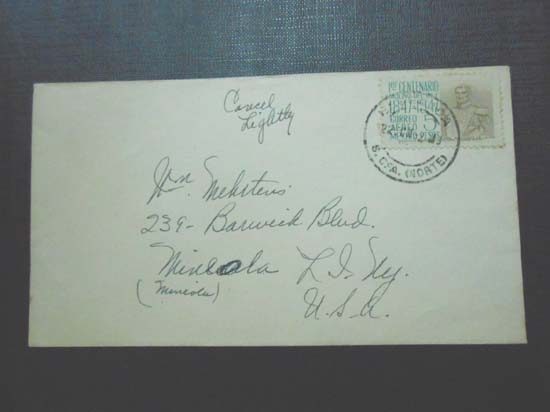 Cancel
Lightly
1er CENTENARIO
1847-1947
CORREO
AEREO
5
S. CPA. (NORTE)
Wm. Mehstens
239- Barwick Blvd.
Mineola L. I. Ny.
(Mineola)
U.S.A.